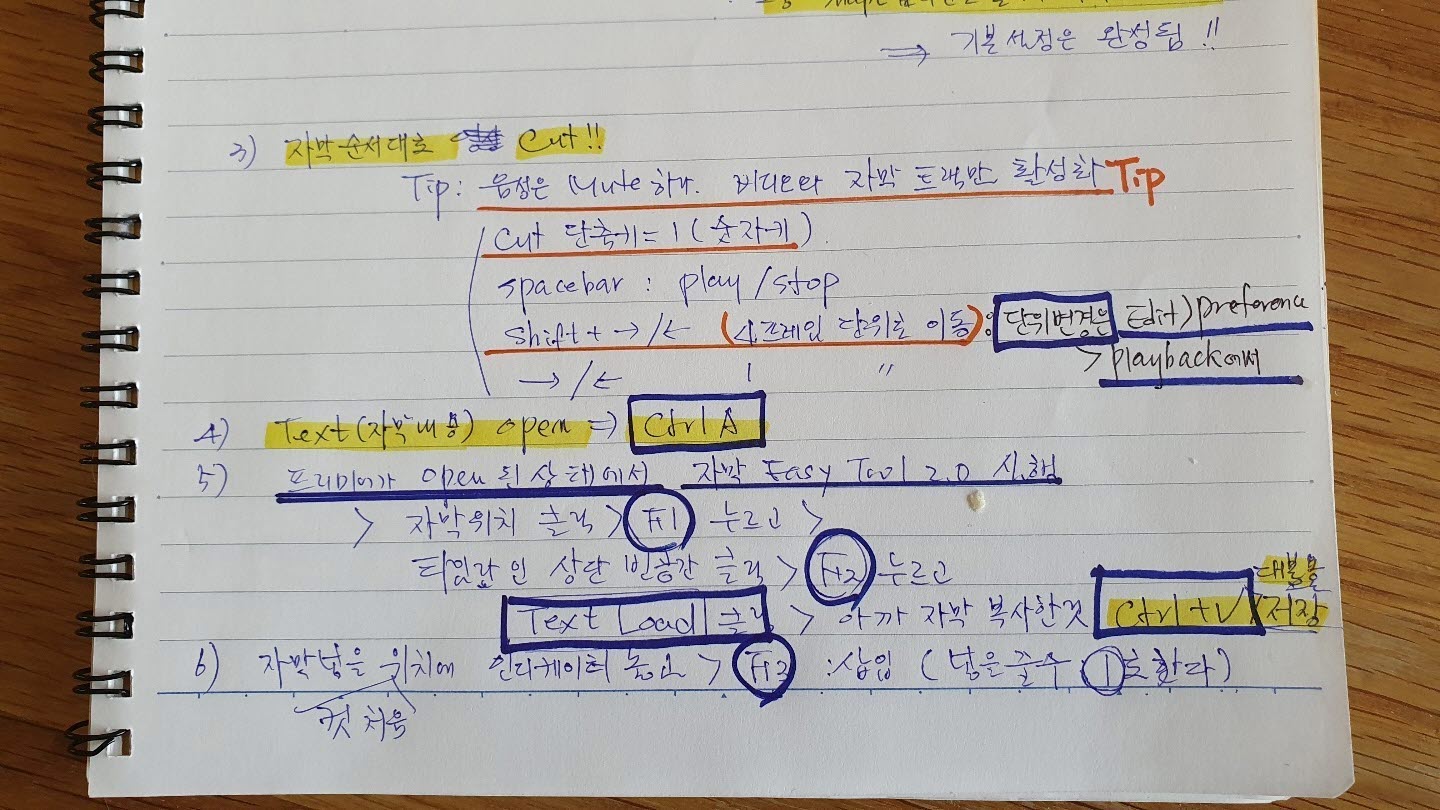 ⇒ 기본설정은 완성됨 !!
3) 자막순서대로 Cut!!
Tip: 음성은 Mute하다. 비디오와 자막 트랙만 활성화 Tip
Cut 단축키 = 1 (숫자키)
spacebar : play/stop
Shift + →/← (4프레임 단위로 이동) : 단위변경은 Edit > preference
> playback에서
→/← 1 〃
4) Text(자막내용) open ⇒ Ctrl A
5) 프리미어가 open 된 상태에서 자막 Easy Tool 2.0 실행
> 자막위치 클릭 > F11 누르고 >
타임라인 상단 빈공간 클릭 > F12 누르고
대본을
Text Load 클릭 > 아까 자막 복사한것 Ctrl + V / 저장
6) 자막넣을 위치에 인디케이터 놓고 > F13 : 삽입 (넣은줄수 1로한다)
컷 처음